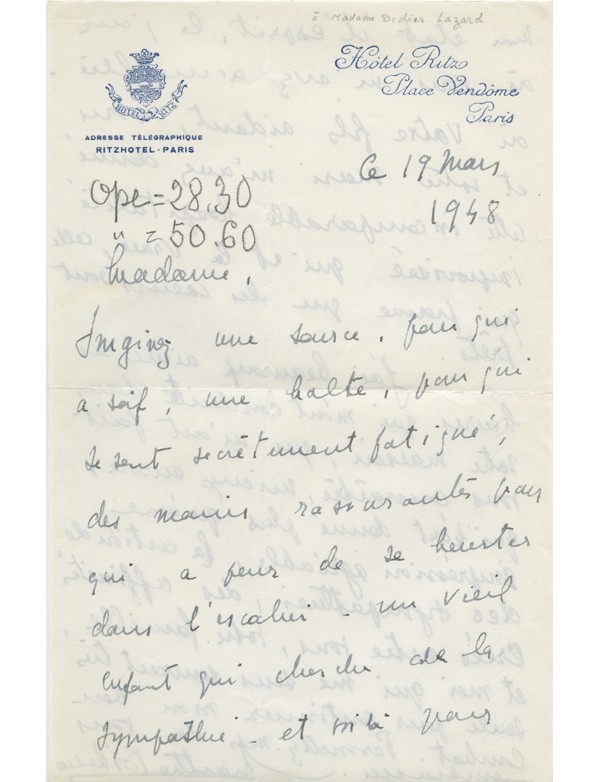 I Madame Didier Lazard
Hôtel Ritz
Place Vendôme
Paris
HOTEL RITZ
ADRESSE TÉLÉGRAPHIQUE
RITZHOTEL-PARIS
Ce 19 Mars
1948
Ope = 28.30
" = 50.60
Madame,
Imginez une source, pour qui
a soif, une halte, pour qui
se sent secrètement fatigué,
des mains rassurantes pour
qui a peur de se heurter
dans l'escalier - un vieil
enfant qui cherche de la
sympathie - et voilà pour